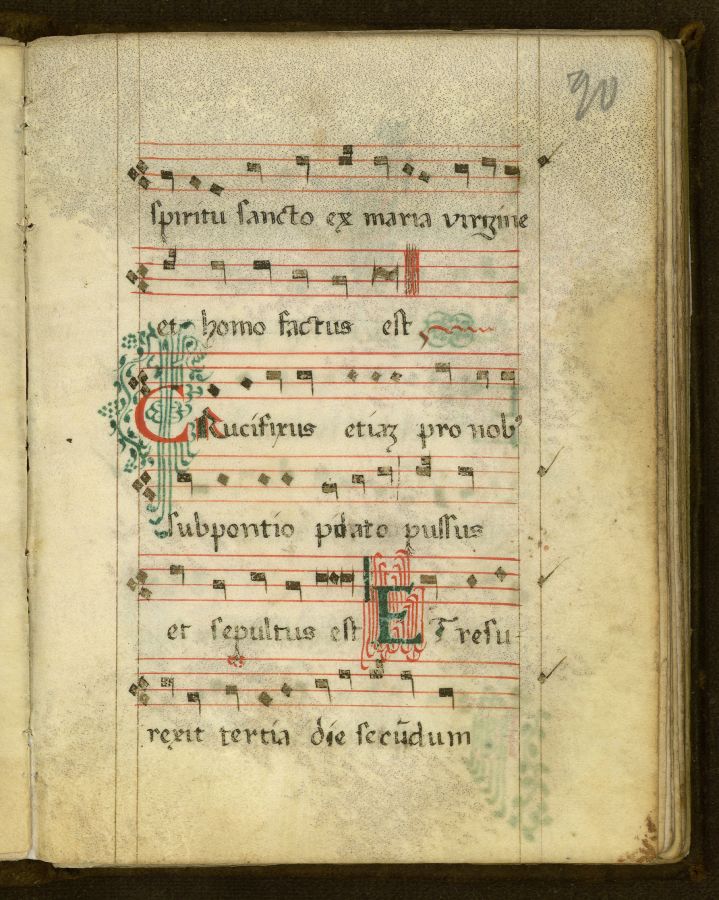 90
spiritu sancto ex maria virgine
et homo factus est
CRucifixus etiaʒ pro nobꝰ
sub pontio pilato passus
et sepultus est ET resu-
rexit tertia die secūdum